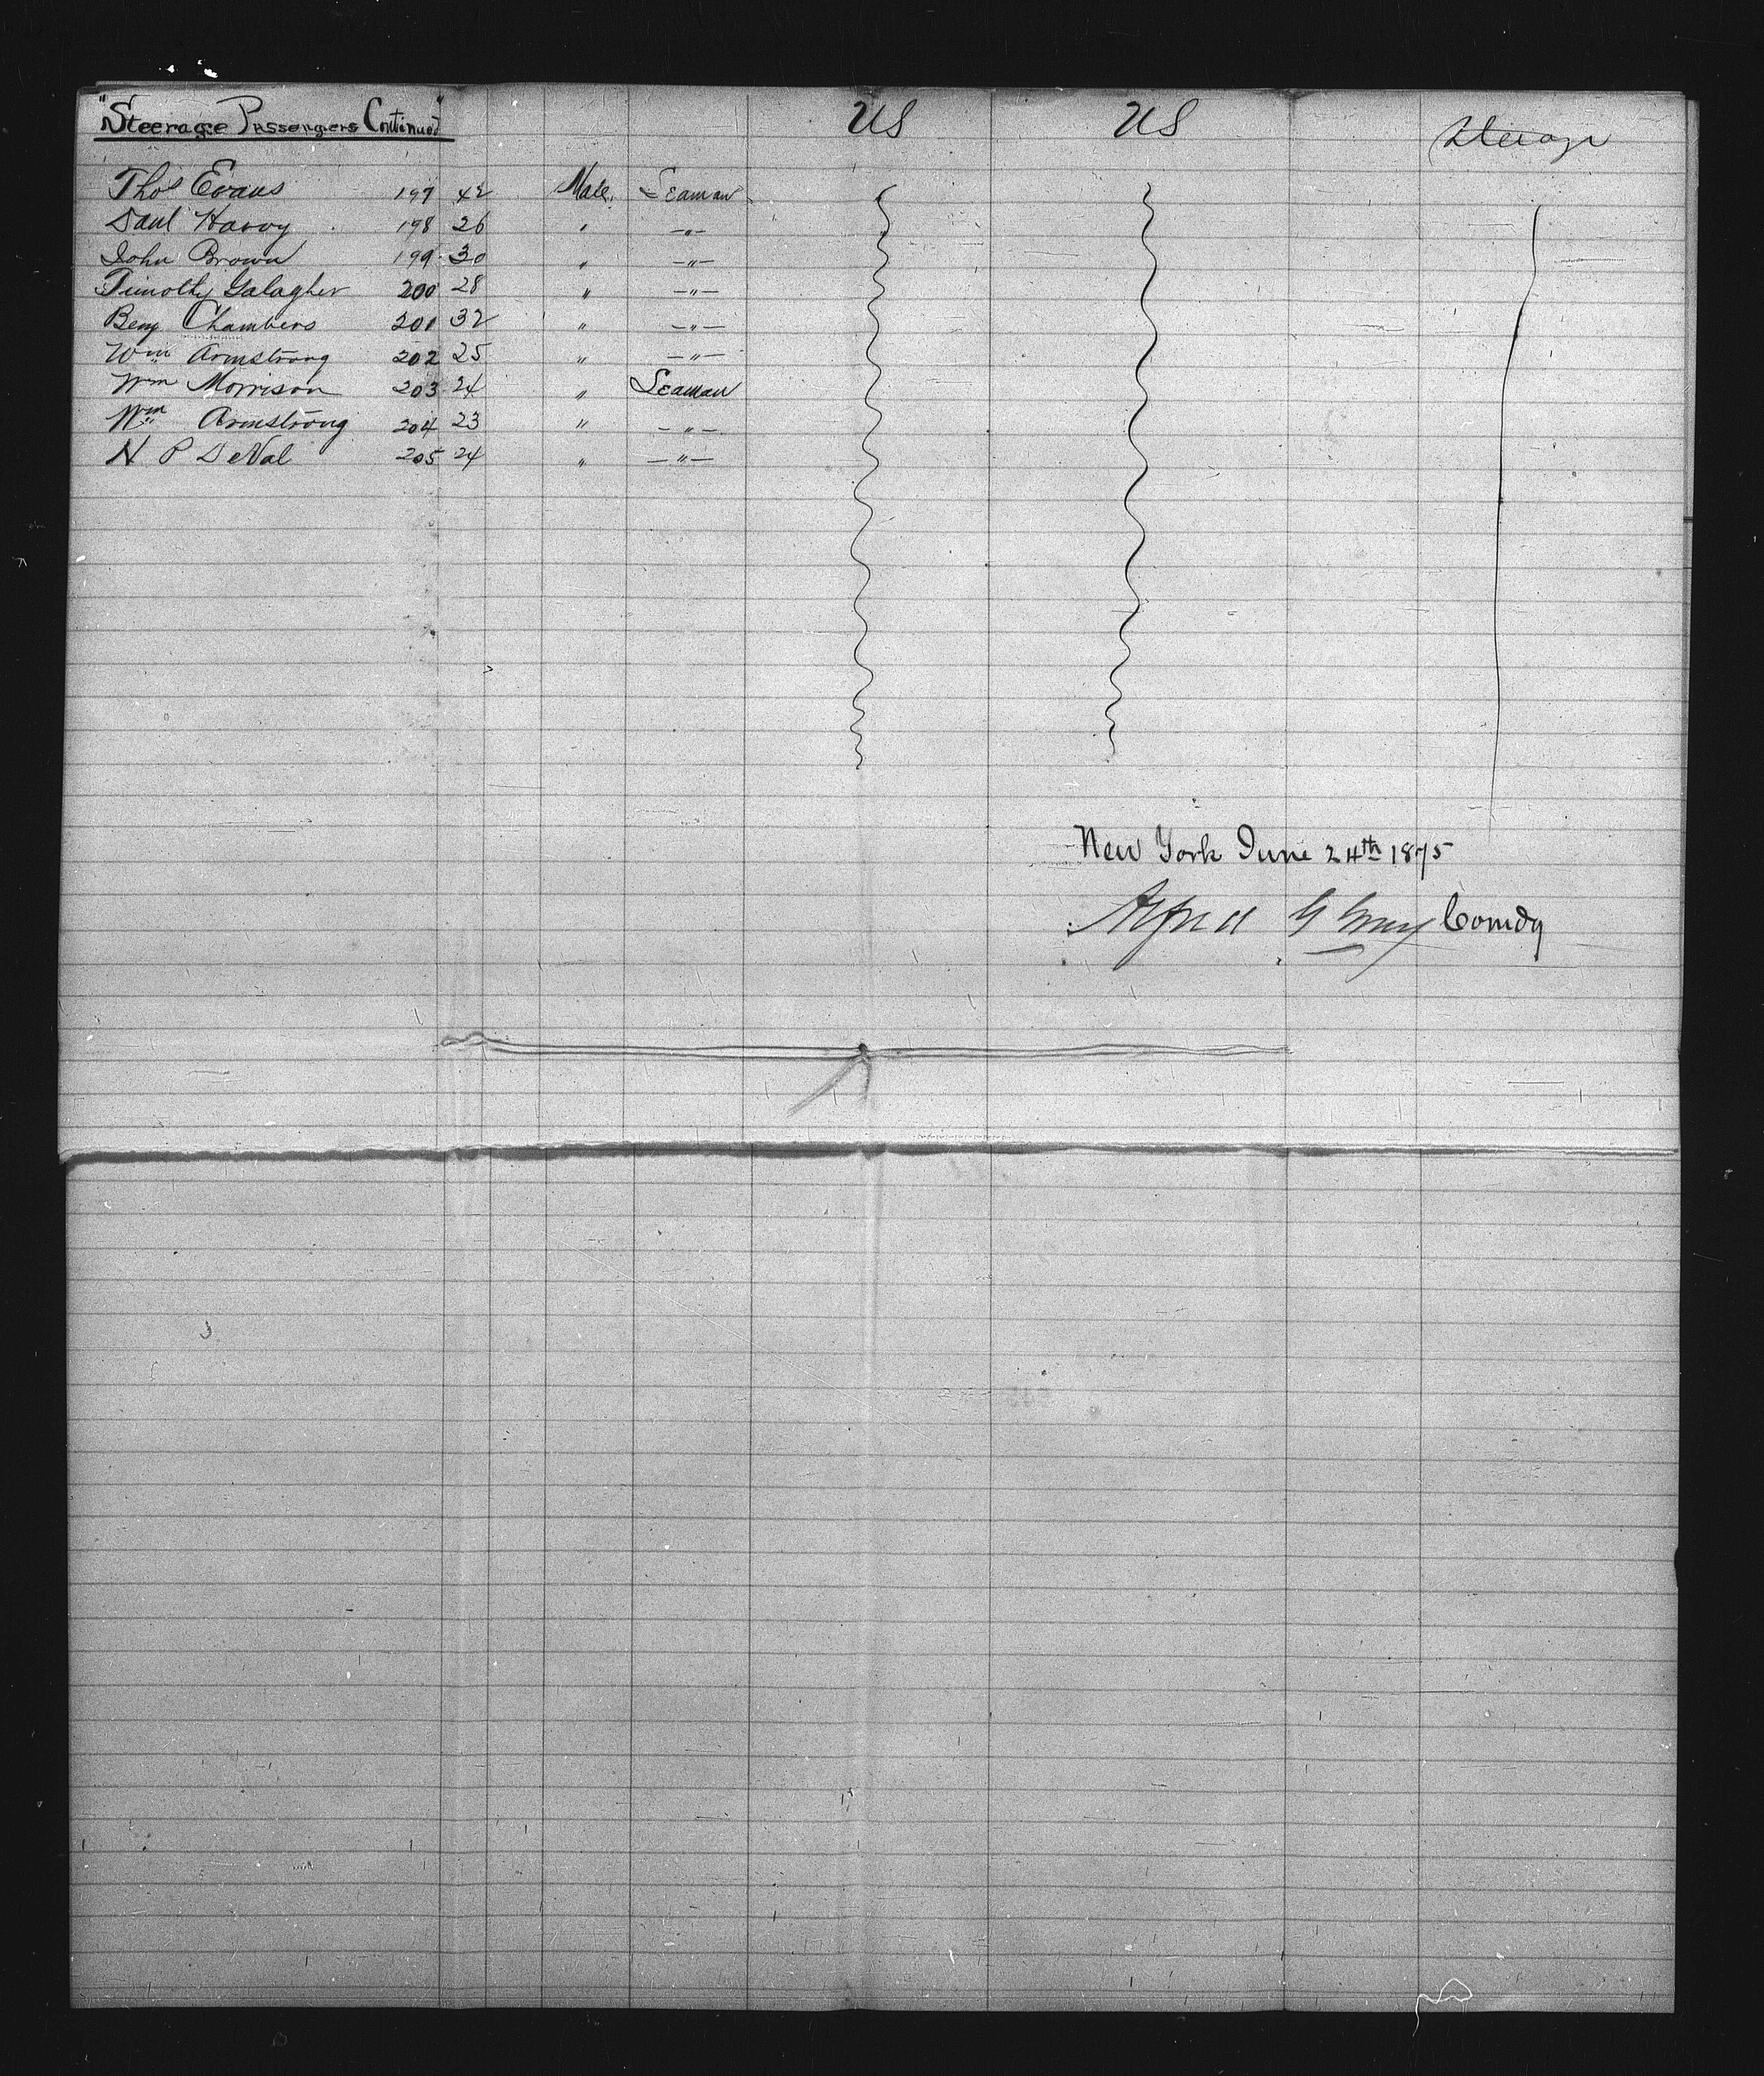 "Steerage Passengers Continued" US US Steerage
Thos Evans 197 42 Male Seaman
Saml Harvy 198 26 " -"-
John Brown 199 30 " -"-
Timothy Galagher 200 28 " -"-
Benj Chambers 201 32 " -"-
Wm Armstrong 202 25 " -"-
Wm Morrison 203 24 " Seaman
Wm Armstrong 204 23 " -"-
N P DeVal 205 24 " -"-
New York June 24th 1875
Alfred G Gray Comdg